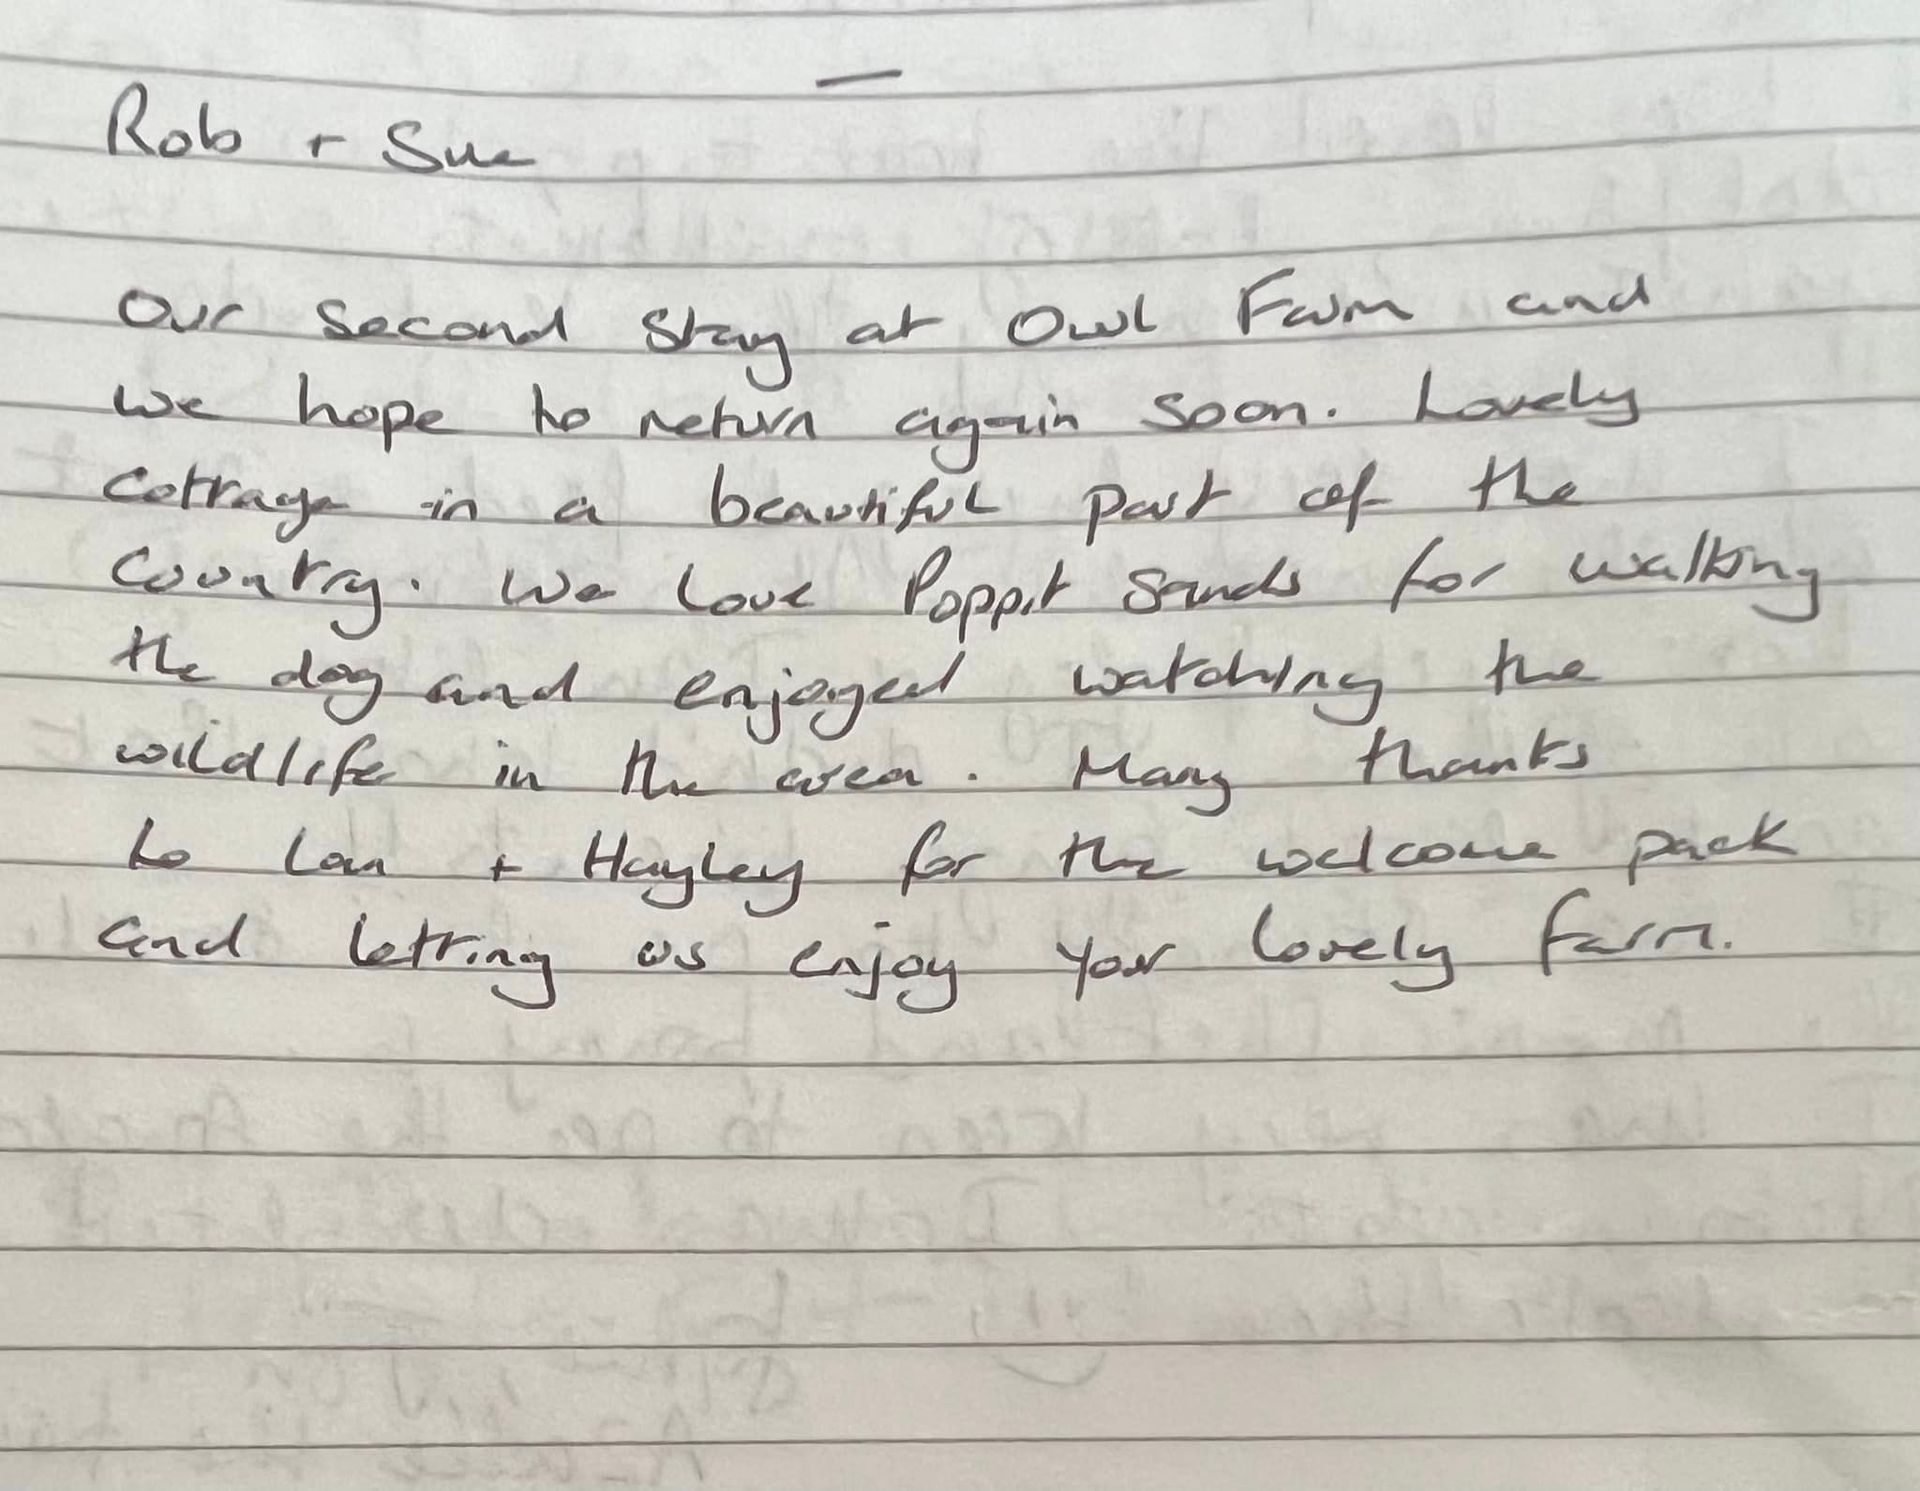 Rob + Sue
Our second stay at Owl Farm and
we hope to return again soon. Lovely
cottage in a beautiful part of the
country. We love Poppit Sands for walking
the dog and enjoyed watching the
wildlife in the area. Many thanks
to + Hayley for the welcome pack
and letting us enjoy your lovely farm.